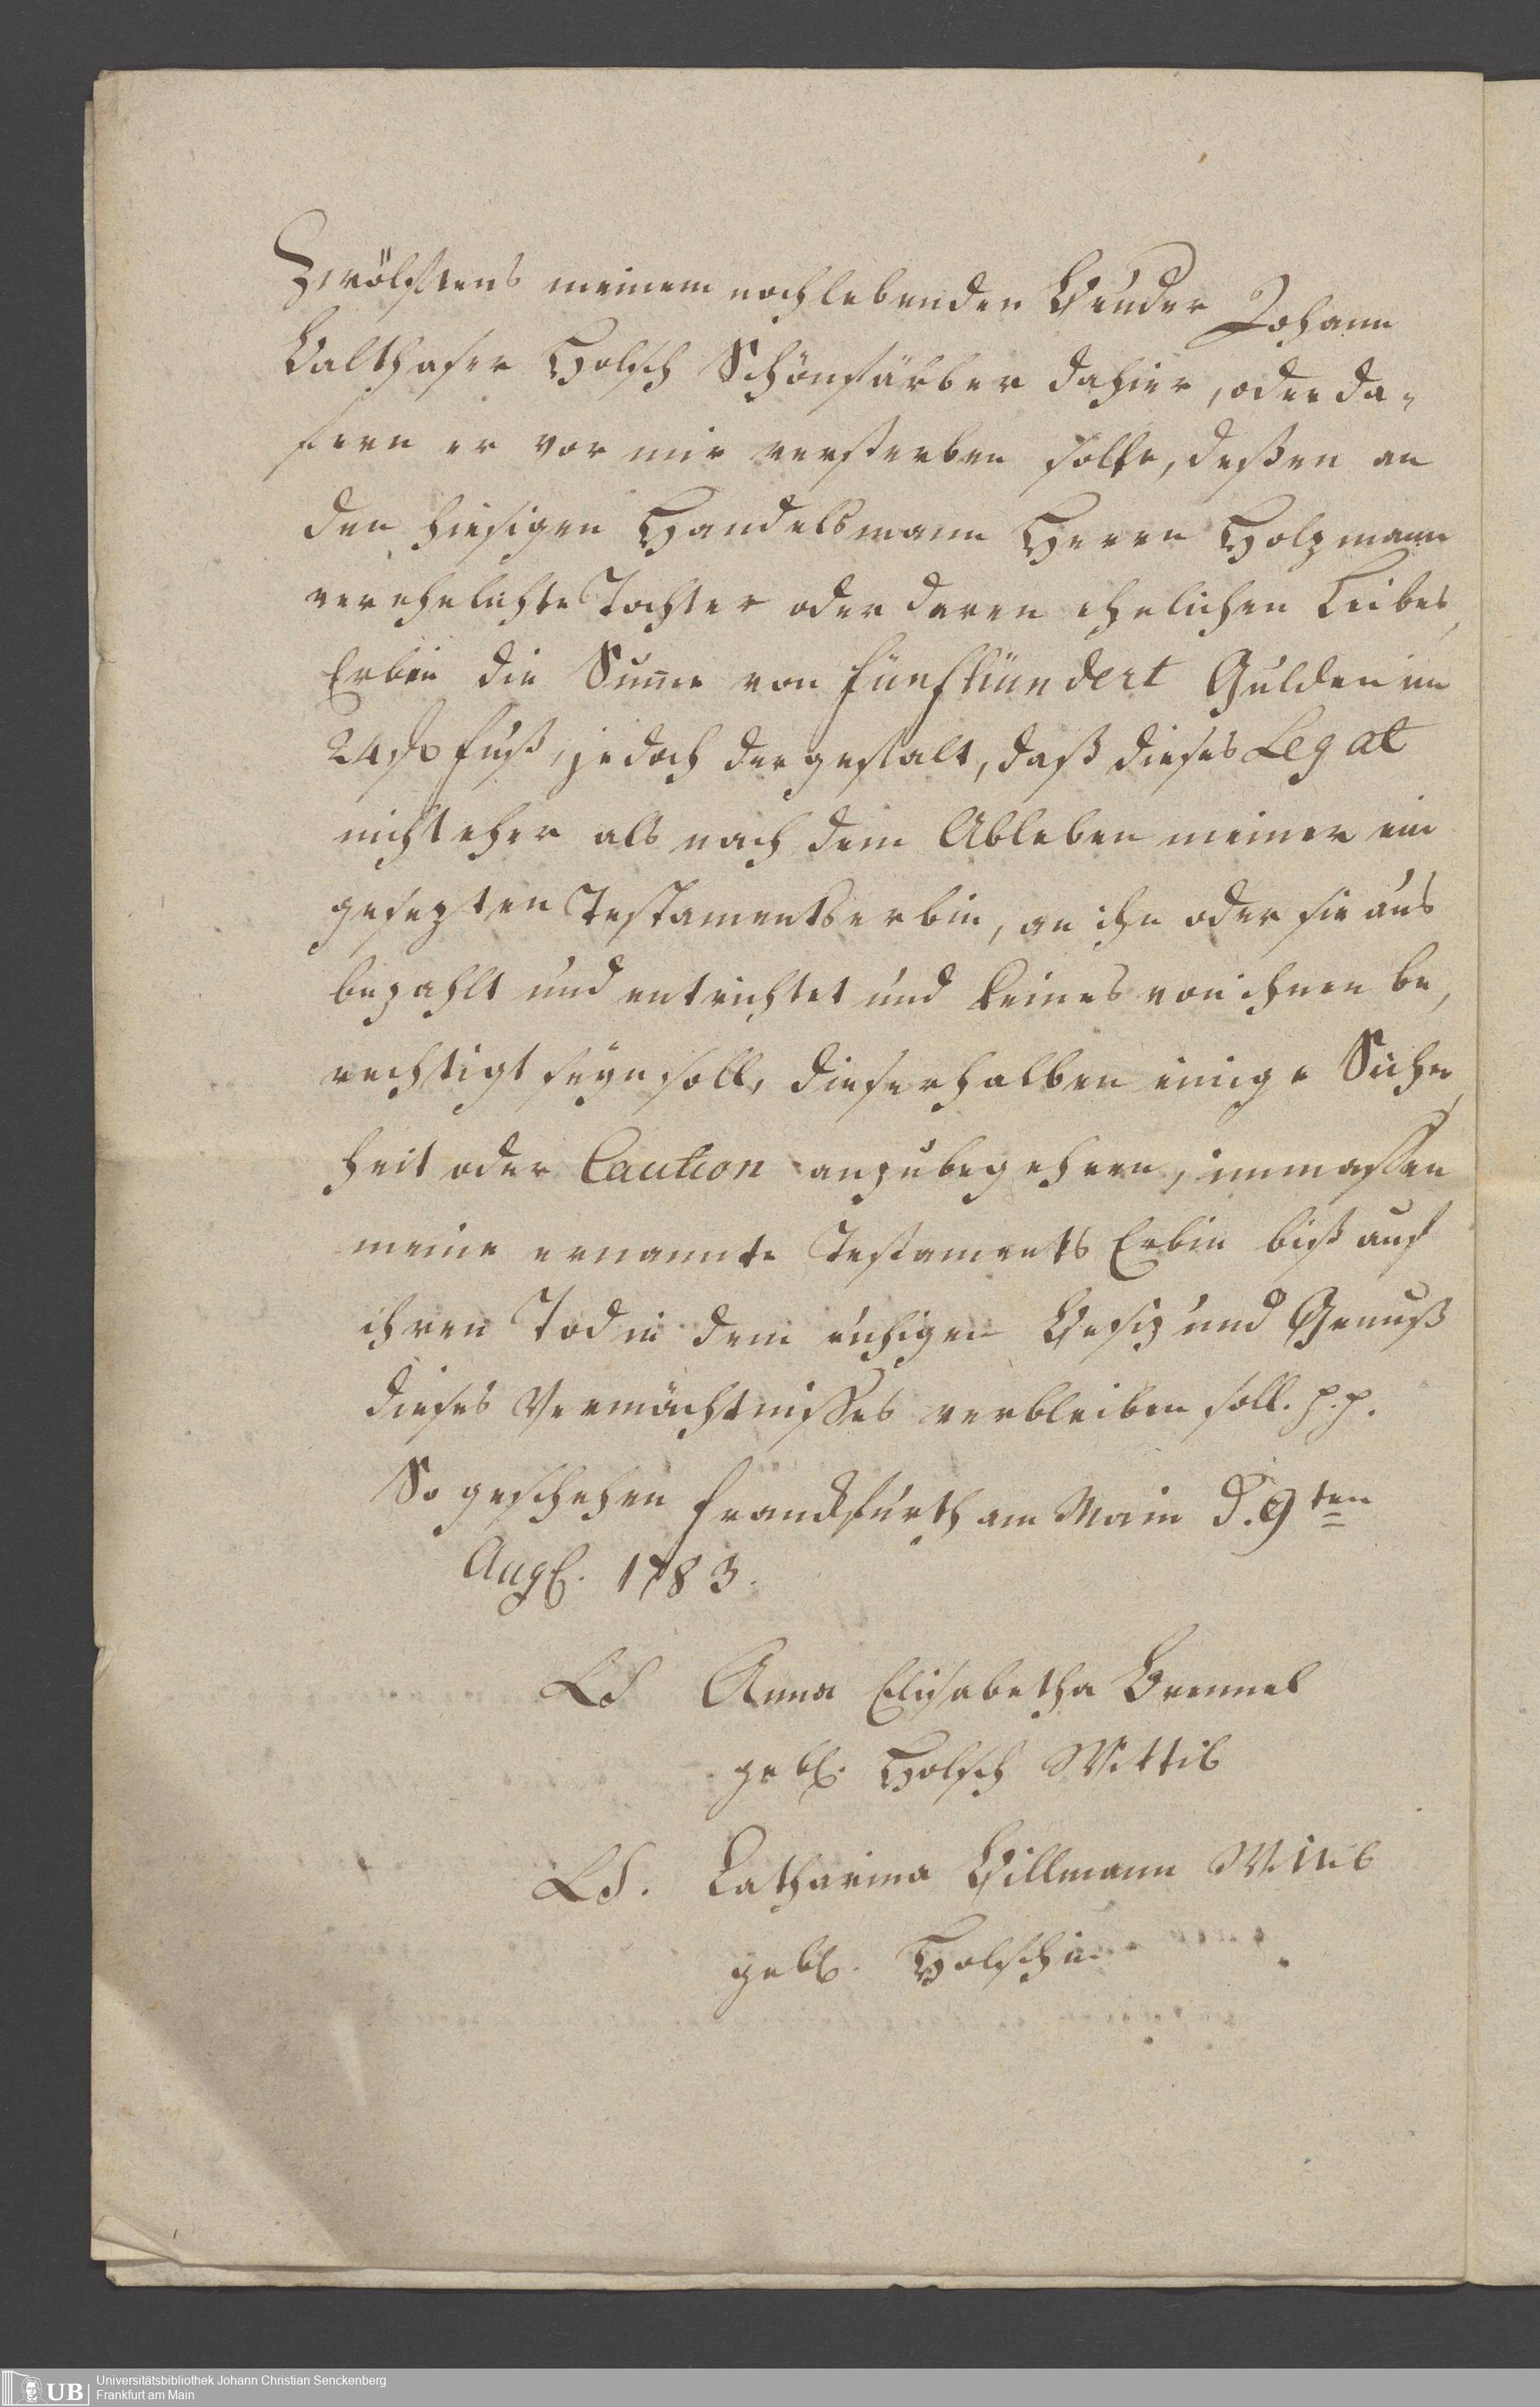 Zwölftens meinem noch lebenden Bruder Johann
Balthaser Holsch Schönfärber dahier, oder da-
fern er vor mir versterben solte, deßen an
den hiesigen Handelsmann Herrn Holzmann
verehelichte Tochter oder deren ehelichen Leibes,
Erben die Suṁe von fünfhundert Gulden im
24 fl fuß, jedoch dergestalt, daß dieses Legat
nicht eher als nach dem Ableben meiner ein
gesezten Testamentserbin, an ihn oder sie aus
bezahlt und entrichtet und keines von ihnen be,
rechtigt seÿn soll, dieserhalben einige Sicher,
heit oder Caution anzubegehren, immassen
meine ernannte Testaments Erbin biß auf
ihren Tod in dem ruhigen Besiz und Genuß
dieses Vermächtnisses verbleiben soll. p. p.
So geschehen Franckfurth am Main d. 9ten
Augl. 1783.
LS Anna Elisabetha Bremmel
gebl. Holsch Wittib
LS. Catharina Willmann Wittib
gebl. Holschin
Universitätsbibliothek Johann Christian Senckenberg
Frankfurt am Main
UB